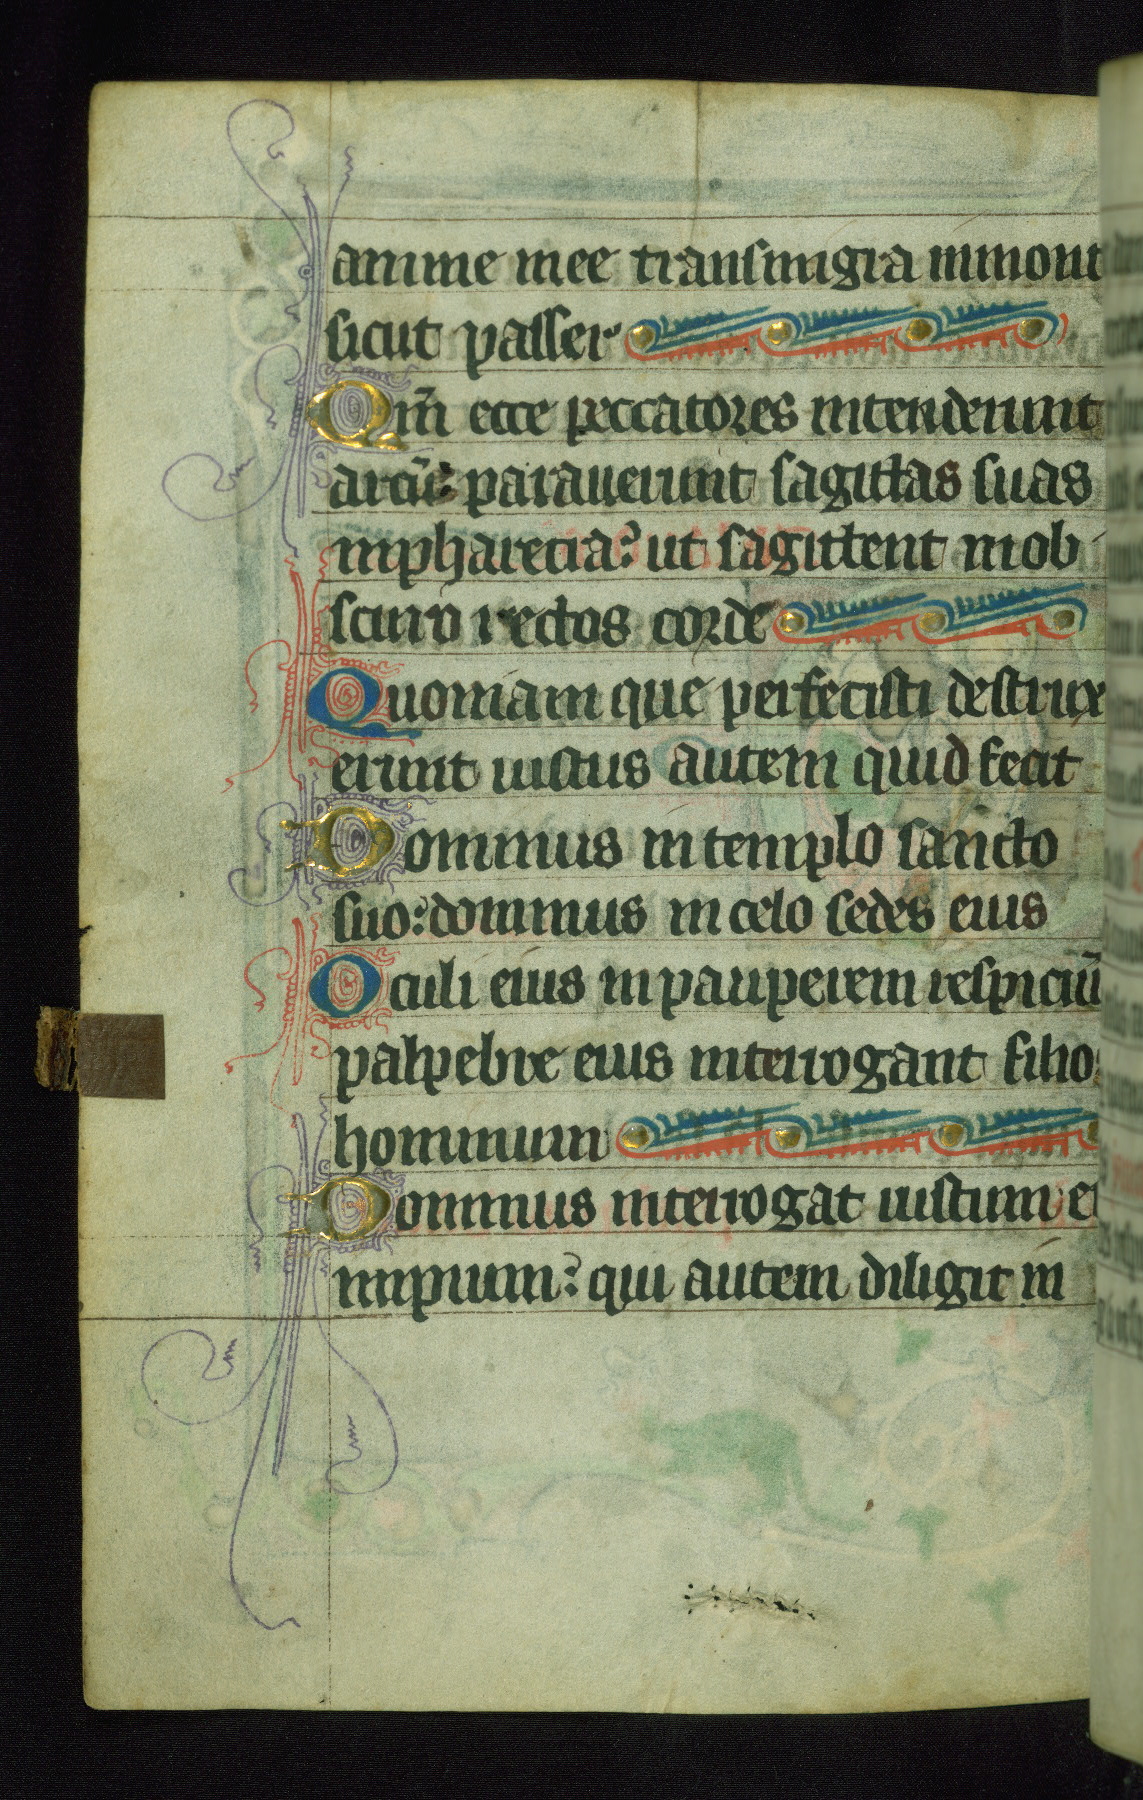 anime mee transmigra inmont
sicut passer
Qm̄ ecce peccatores intenderunt
arcū: parauerunt sagittas suas
inpharetra: ut sagittent inob
scuro rectos corde
Quoniam que perfecisti destrux
erunt iustus autem quid fecit
Dominus in templo sancto
suo: dominus in celo sedes eius
Oculi eius inpauperem respiciū
palpebre eius interrogant filios
hominum
Dominus interrogat iustum et
impium: qui autem diligit in